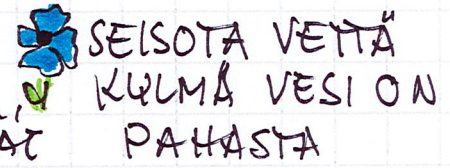 SEISOTA VETTÄ
KYLMÄ VESI ON
PAHASTA